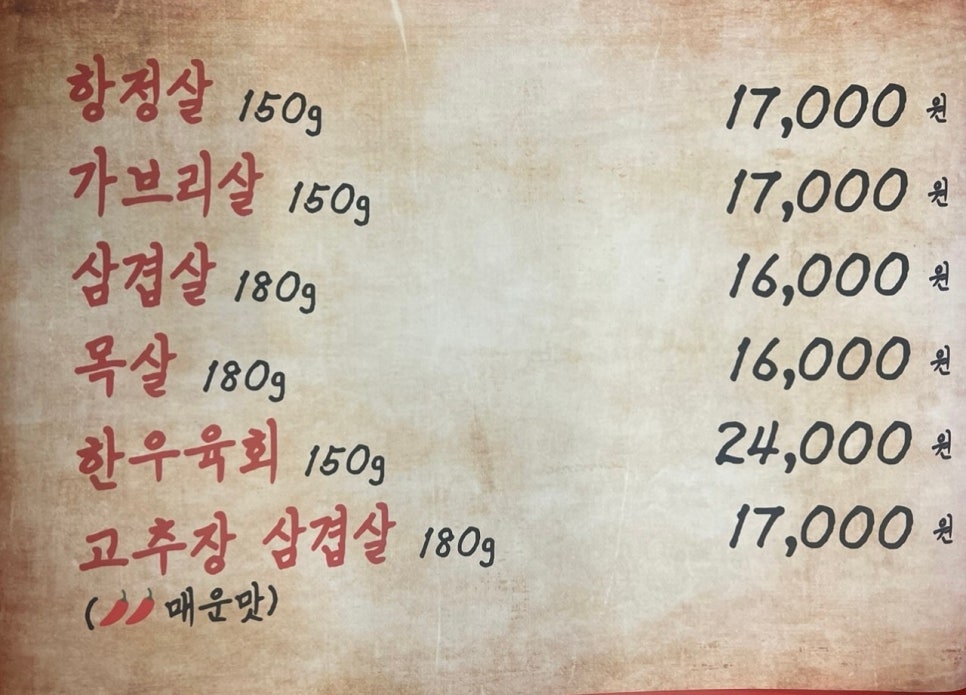 항정살 150g 17,000 원
가브리살 150g 17,000 원
삼겹살 180g 16,000 원
목살 180g 16,000 원
한우육회 150g 24,000 원
고추장 삼겹살 180g 17,000 원
(🌶🌶 매운맛)